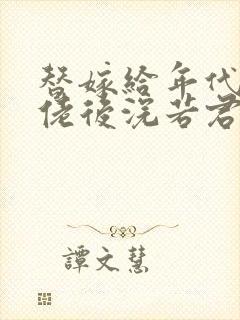 替嫁给年代
佬後浣若君
譚文慧